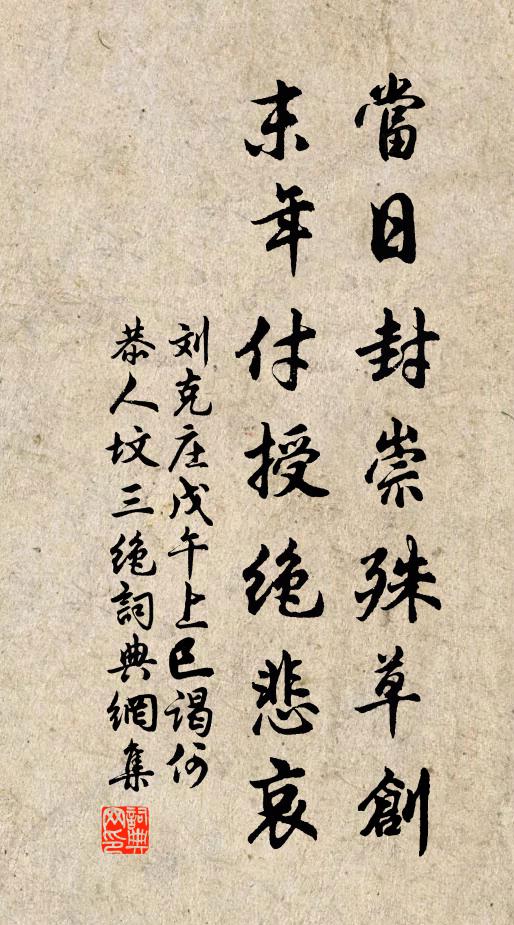 當日封崇殊草創
末年付授绝悲哀
刘克庄戊午上巳谒何
恭人坟三绝詞典網集
詞典网印